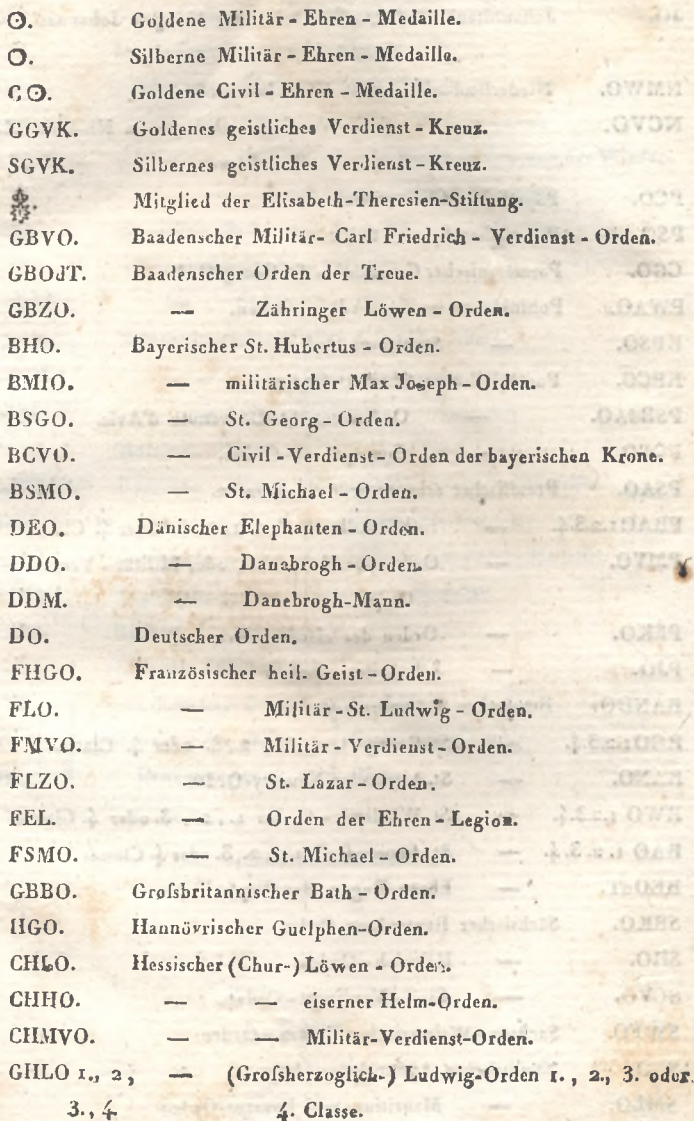 ☉. Goldene Militär - Ehren - Medaille.
O. Silberne Militär - Ehren - Medaille.
C☉. Goldene Civil - Ehren - Medaille.
GGVK. Goldenes geistliches Verdienst - Kreuz.
SGVK. Silbernes geistliches Verdienst - Kreuz.
Mitglied der Elisabeth-Theresien-Stiftung.
GBVO. Baadenscher Militär- Carl Friedrich - Verdienst - Orden.
GBOdT. Baadenscher Orden der Treue.
GBZO. — Zähringer Löwen - Orden.
BHO. Bayerischer St. Hubertus - Orden.
BMIO. — militärischer Max Joseph - Orden.
BSGO. — St. Georg - Orden.
BCVO. — Civil - Verdienst - Orden der bayerischen Krone.
BSMO. — St. Michael - Orden.
DEO. Dänischer Elephanten - Orden.
DDO. — Danebrogh - Orden.
DDM. — Danebrogh-Mann.
DO. Deutscher Orden.
FHGO. Französischer heil. Geist - Orden.
FLO. — Militär - St. Ludwig - Orden.
FMVO. — Militär - Verdienst - Orden.
FLZO. — St. Lazar - Orden.
FEL. — Orden der Ehren - Legion.
FSMO. — St. Michael - Orden.
GBBO. Groſsbritannischer Bath - Orden.
HGO. Hannövrischer Guelphen-Orden.
CHLO. Hessischer (Chur-) Löwen - Orden.
CHHO. — — eiserner Helm-Orden.
CHMVO. — — Militär-Verdienst-Orden.
GHLO 1., 2, — (Groſsherzoglich-) Ludwig-Orden 1., 2., 3. oder
3., 4 4. Classe.